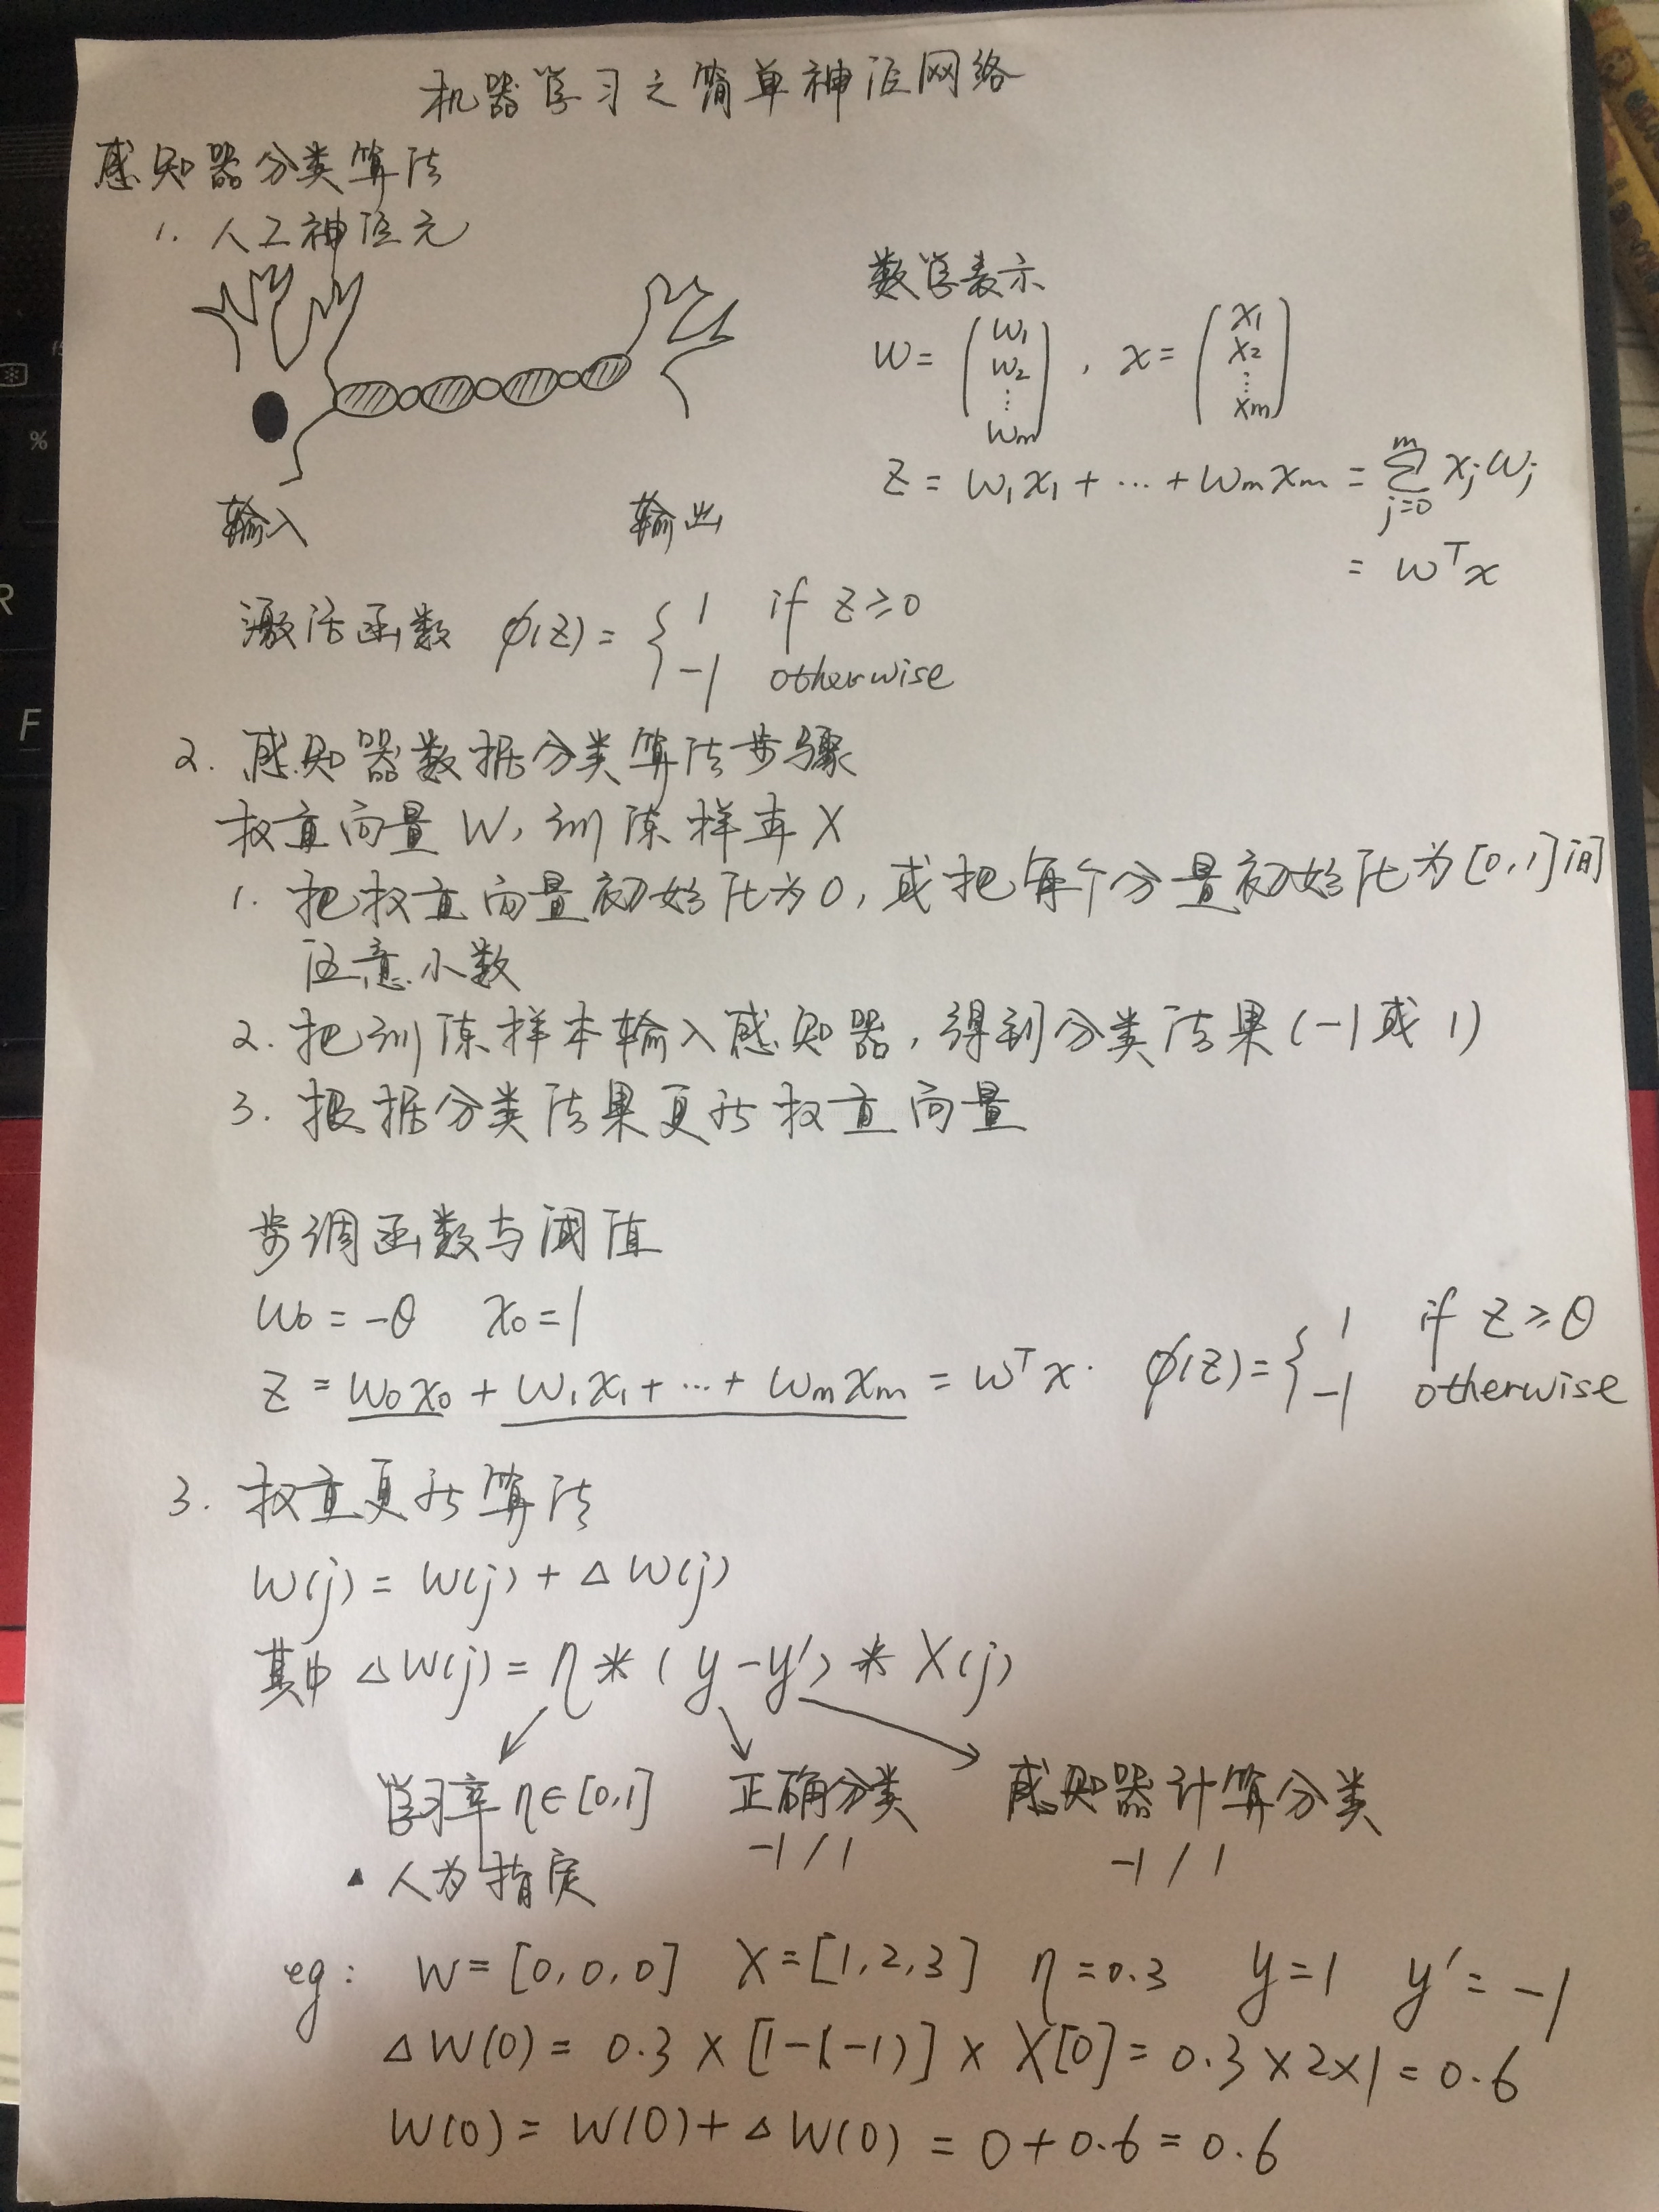 机器学习之简单神经网络
感知器分类算法
1. 人工神经元
数学表示
w = (w1 w2 ⋮ wm), x = (x1 x2 ⋮ xm)
z = w1x1 + ... + wmxm = ∑_{j=0}^{m} xjwj
= w^T x
输入 输出
激活函数 φ(z) = { 1 if z ≥ 0
-1 otherwise
2. 感知器数据分类算法步骤
权重向量 W, 训练样本 X
1. 把权重向量初始化为0, 或把每个分量初始化为[0,1]间
任意小数
2. 把训练样本输入感知器, 得到分类结果(-1或1)
3. 根据分类结果更新权重向量
步调函数与阈值
w0 = -θ x0 = 1
z = w0x0 + w1x1 + ... + wmxm = w^T x. φ(z) = { 1 if z ≥ θ
-1 otherwise
3. 权重更新算法
W(j) = W(j) + △W(j)
其中 △W(j) = η * (y - y') * X(j)
学习率 η∈[0,1] 正确分类 感知器计算分类
-1 / 1 -1 / 1
▲ 人为指定
eg: W = [0,0,0] X = [1,2,3] η = 0.3 y = 1 y' = -1
△W(0) = 0.3 × [1-(-1)] × X[0] = 0.3 × 2 × 1 = 0.6
W(0) = W(0) + △W(0) = 0 + 0.6 = 0.6
%
R
F